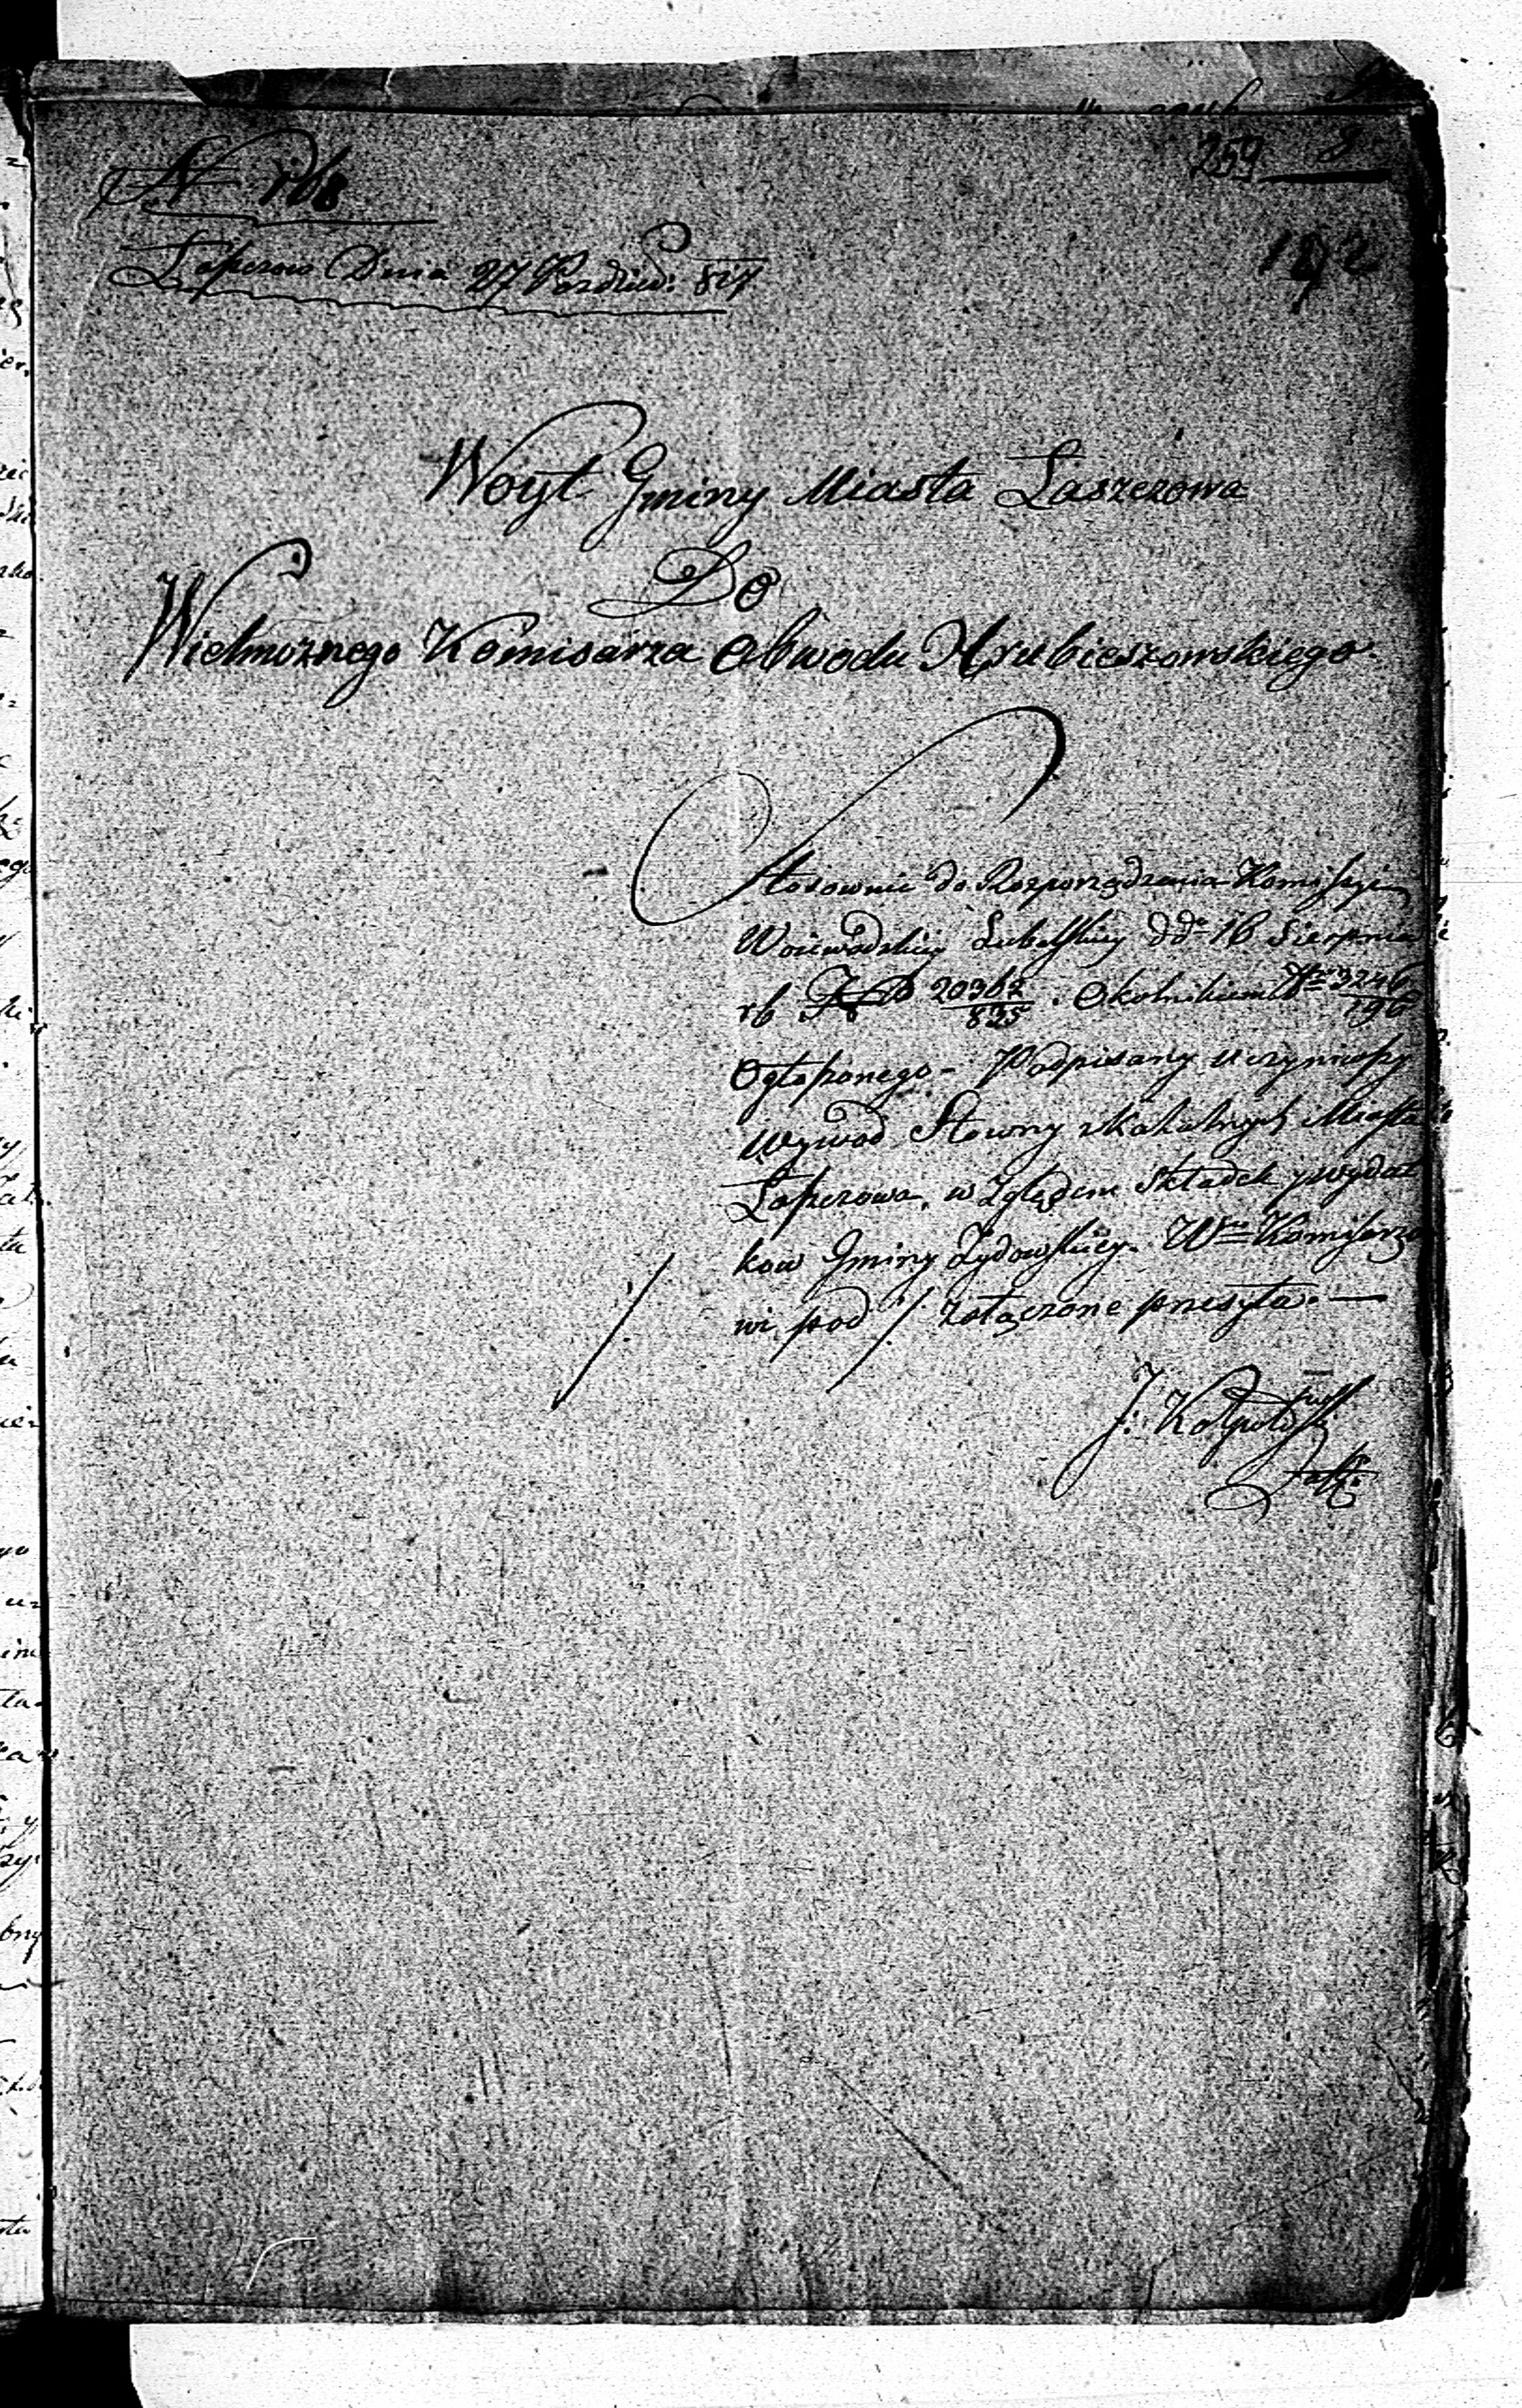 259
N 168
Łaszczow Dnia 27 Pazdzier: 827
Woyt Gminy Miasta Łaszczowa
Do
Wielmożnego Komisarza Obwodu Hrubieszowskiego
Stosownie do Rozporządzenia Komissyi
Woiewodzkiey Lubelskiey dd° 16 Sierpnia
rb 20362/835 Okolnikiem Nrm 3246/196
Ogłoszonego - Podpisany uczyniwszy
Wywod Słowny z Kahalnych Miasta
Łaszczowa, w Zględem Składek y wydat
kow Gminy Żydowskiey. Wmu Komissarzo
wi pod ./. załączone przesyła. —
./.